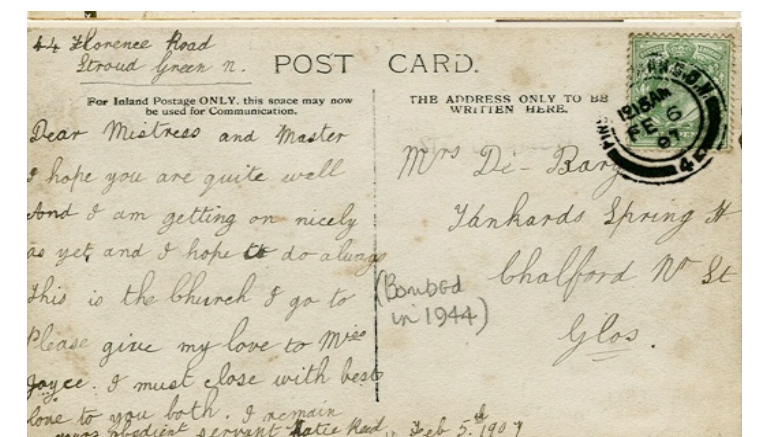 44 Florence Road
Stroud Green N.
POST CARD.
For Inland Postage ONLY, this space may now
be used for Communication.
THE ADDRESS ONLY TO BE
WRITTEN HERE.
Dear Mistress and Master
I hope you are quite well
And I am getting on nicely
as yet, and I hope to do always
This is the Church I go to
Please give my love to Miss
Joyce. I must close with best
love to you both. I remain
your obedient servant Katie Read. Feb 5.th 1907
Mrs Di-Bary
Tankards Spring H
Chalford Nr St
Glos.
(Bombed
in 1944)
12.15AM
FE 6
07